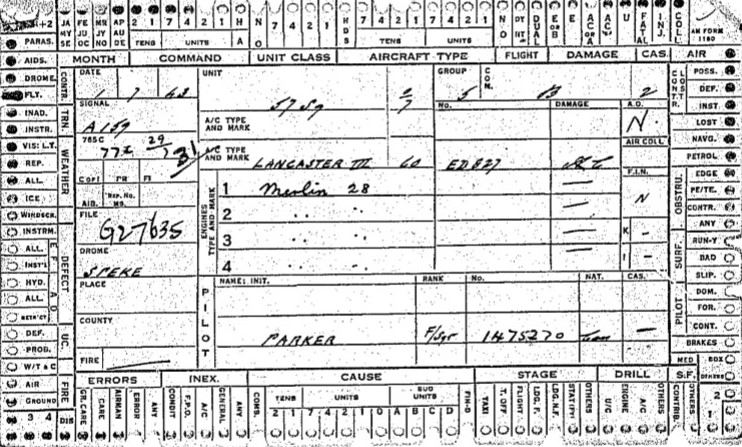 +2 JA MY SE FE JU OC MR JY NO AP AU DE 2 1 7 4 TENS UNITS H A N O 7 4 2 1 HDS 7 4 2 1 7 4 2 1 TENS UNITS NO DUAL E OR B E AC OR A AC U FATAL INJ. COLL. AM FORM 1180
MONTH COMMAND UNIT CLASS AIRCRAFT TYPE FLIGHT DAMAGE CAS. AIR
PARAS.
AIDS.
DROME.
FLT.
INAD.
INSTR.
VIS: L.T.
REP.
ALL.
ICE
WINDSCR.
INSTRM.
ALL.
INST'L
HYD.
ALL.
RETR'CT
DEF.
PROB.
W/T & C
AIR
GROUND
3 4
CONTR. TRN. WEATHER DEFECT. UC. FIRE DIS
DATE 1 7 43 UNIT GROUP 5 COM. B 2
SIGNAL 57 Sq No. DAMAGE A.O.
A159 A/C TYPE AND MARK N.
765C 772 29/7 31 AIR COLL
A/C TYPE AND MARK LANCASTER III 60 ED827
COPI PR FI F.I.N.
AIB. REP. No. MS. ENGINES TYPE AND MARK 1 Merlin 28 — N
FILE G27635 2 " " —
3 " " — K —
DROME SPEKE 4 " " — I —
PLACE PILOT NAME: INIT. RANK No. NAT. CAS.
COUNTY PARKER F/Sgt 1475270 —
FIRE —
CONTR. LOST OBSTRU. SURF. PILOT
POSS.
DEF.
INST.
LOST
NAVG.
PETROL
EDGE
PE/TE.
CONTR.
ANY
RUN-Y
BAD
SLIP.
DOM.
FOR.
CONT.
BRAKES
MED BOX
OTHERS
ERRORS INEX. CAUSE STAGE DRILL S.F.
GR. CARE CARE AIRMAN ERROR ANY CONDIT F.P.O. A/C GENERAL ANY CONS. TENS UNITS SUB UNITS 2 1 7 4 2 1 0 A B C D FIN-D TAXI T. OFF FLIGHT LDG. F. LDG. N.F. STAT(PY) OTHERS U/C ENGINE A/C OTHERS CONTRIB. 2 1